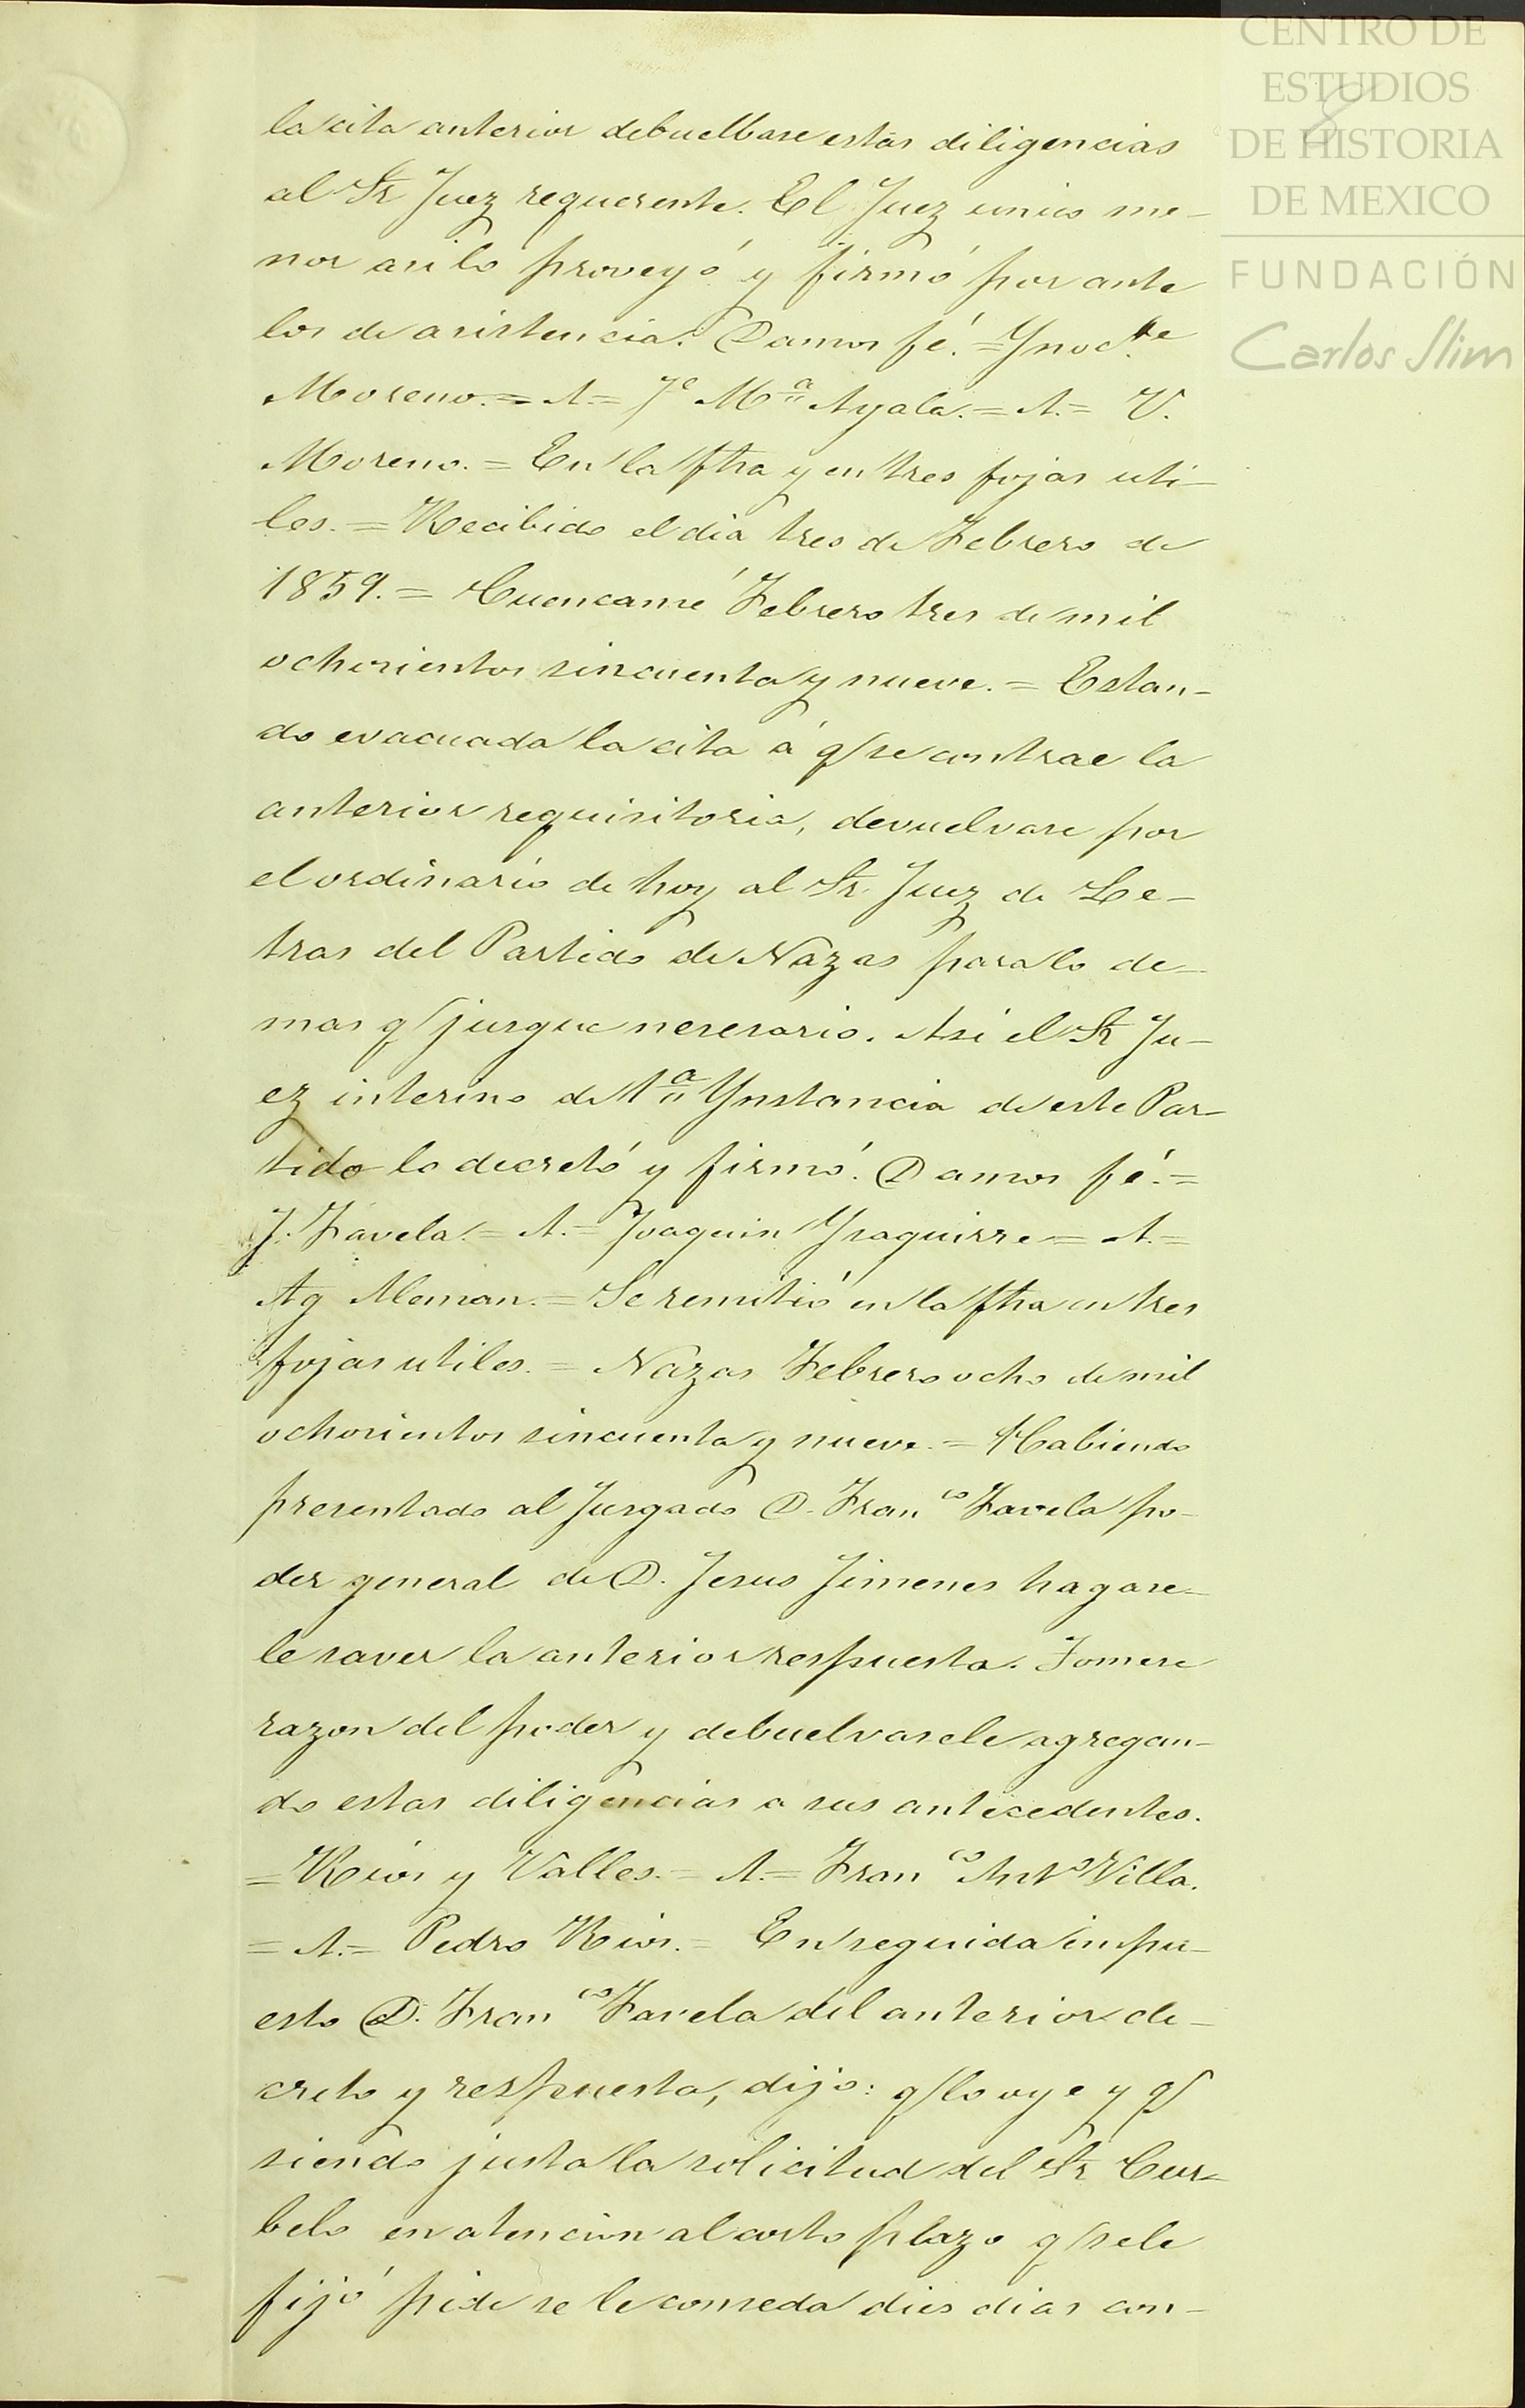 CENTRO DE
ESTUDIOS
DE HISTORIA
DE MEXICO
FUNDACIÓN
Carlos Slim
8
la cita anterior debuelbase estas diligencias
al Sr Juez requerente. El Juez unico me-
nor asi lo proveyó y firmó por ante
los de asistencia. Damos fé. = Ynocte
Moreno. = A = Je Ma Ayala. = A. = V.
Moreno. = En la fha y en tres fojas uti-
les. = Recibido el dia tres de Febrero de
1859. = Cuencamé Febrero tres de mil
ochosientos sincuenta y nueve. = Estan-
do evacuada la cita á q/ se contrae la
anterior requisitoria, devuelvase por
el ordinario de hoy al Sr. Juez de Le-
tras del Partido de Nazas para lo de-
mas q/ jusgue nesesario. Asi el Sr Ju-
ez interino de 1a Ynstancia de este Par-
tido lo decretó y firmó. Damos fé. =
J. Favela. = A. = Joaquin Ysaguirre = A. =
Ag Aleman. = Se remitió en la fha en tres
fojas utiles. = Nazas Febrero ocho de mil
ochosientos sincuenta y nueve. = Habiendo
presentado al Jusgado D. Franco Favela po-
der general de D. Jesus Jimenes hagase-
le saver la anterior respuesta. Tomese
razon del poder y debuelvasele agregan-
do estas diligencias a sus antecedentes.
= Rios y Valles. = A. = Franco Anto Villa.
= A. = Pedro Rios. = En seguida impu-
esto D. Franco Favela del anterior de-
creto y respuesta, dijo: q/ lo oye y q/
siendo justa la solicitud del Sr Cur-
belo en atencion al corto plazo q/ se le
fijó pide se le conseda dies dias con-